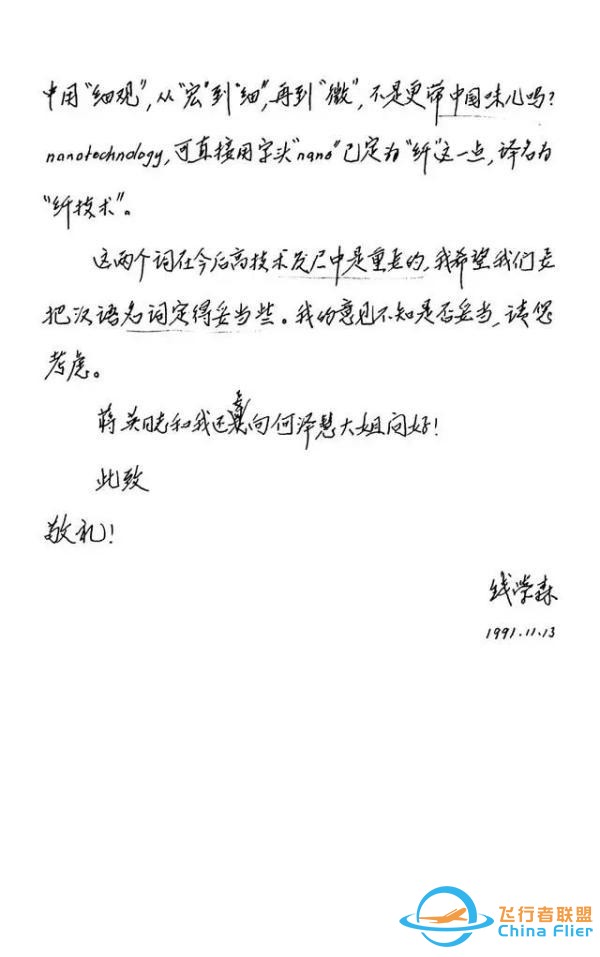 中用“细观”，从“宏”到“细”，再到“微”，不是更带中国味儿吗？
nanotechnology，可直接用字头“nano”已定为“纤”这一点，译名为
“纤技术”。
这两个词在今后高技术发展中是重要的，我希望我们要
把汉语名词定得妥当些。我的意见不知是否妥当，请您
考虑。
蒋英同志和我还要向何泽慧大姐问好！
此致
敬礼！
钱学森
1991.11.13
飞行者联盟
China Flier